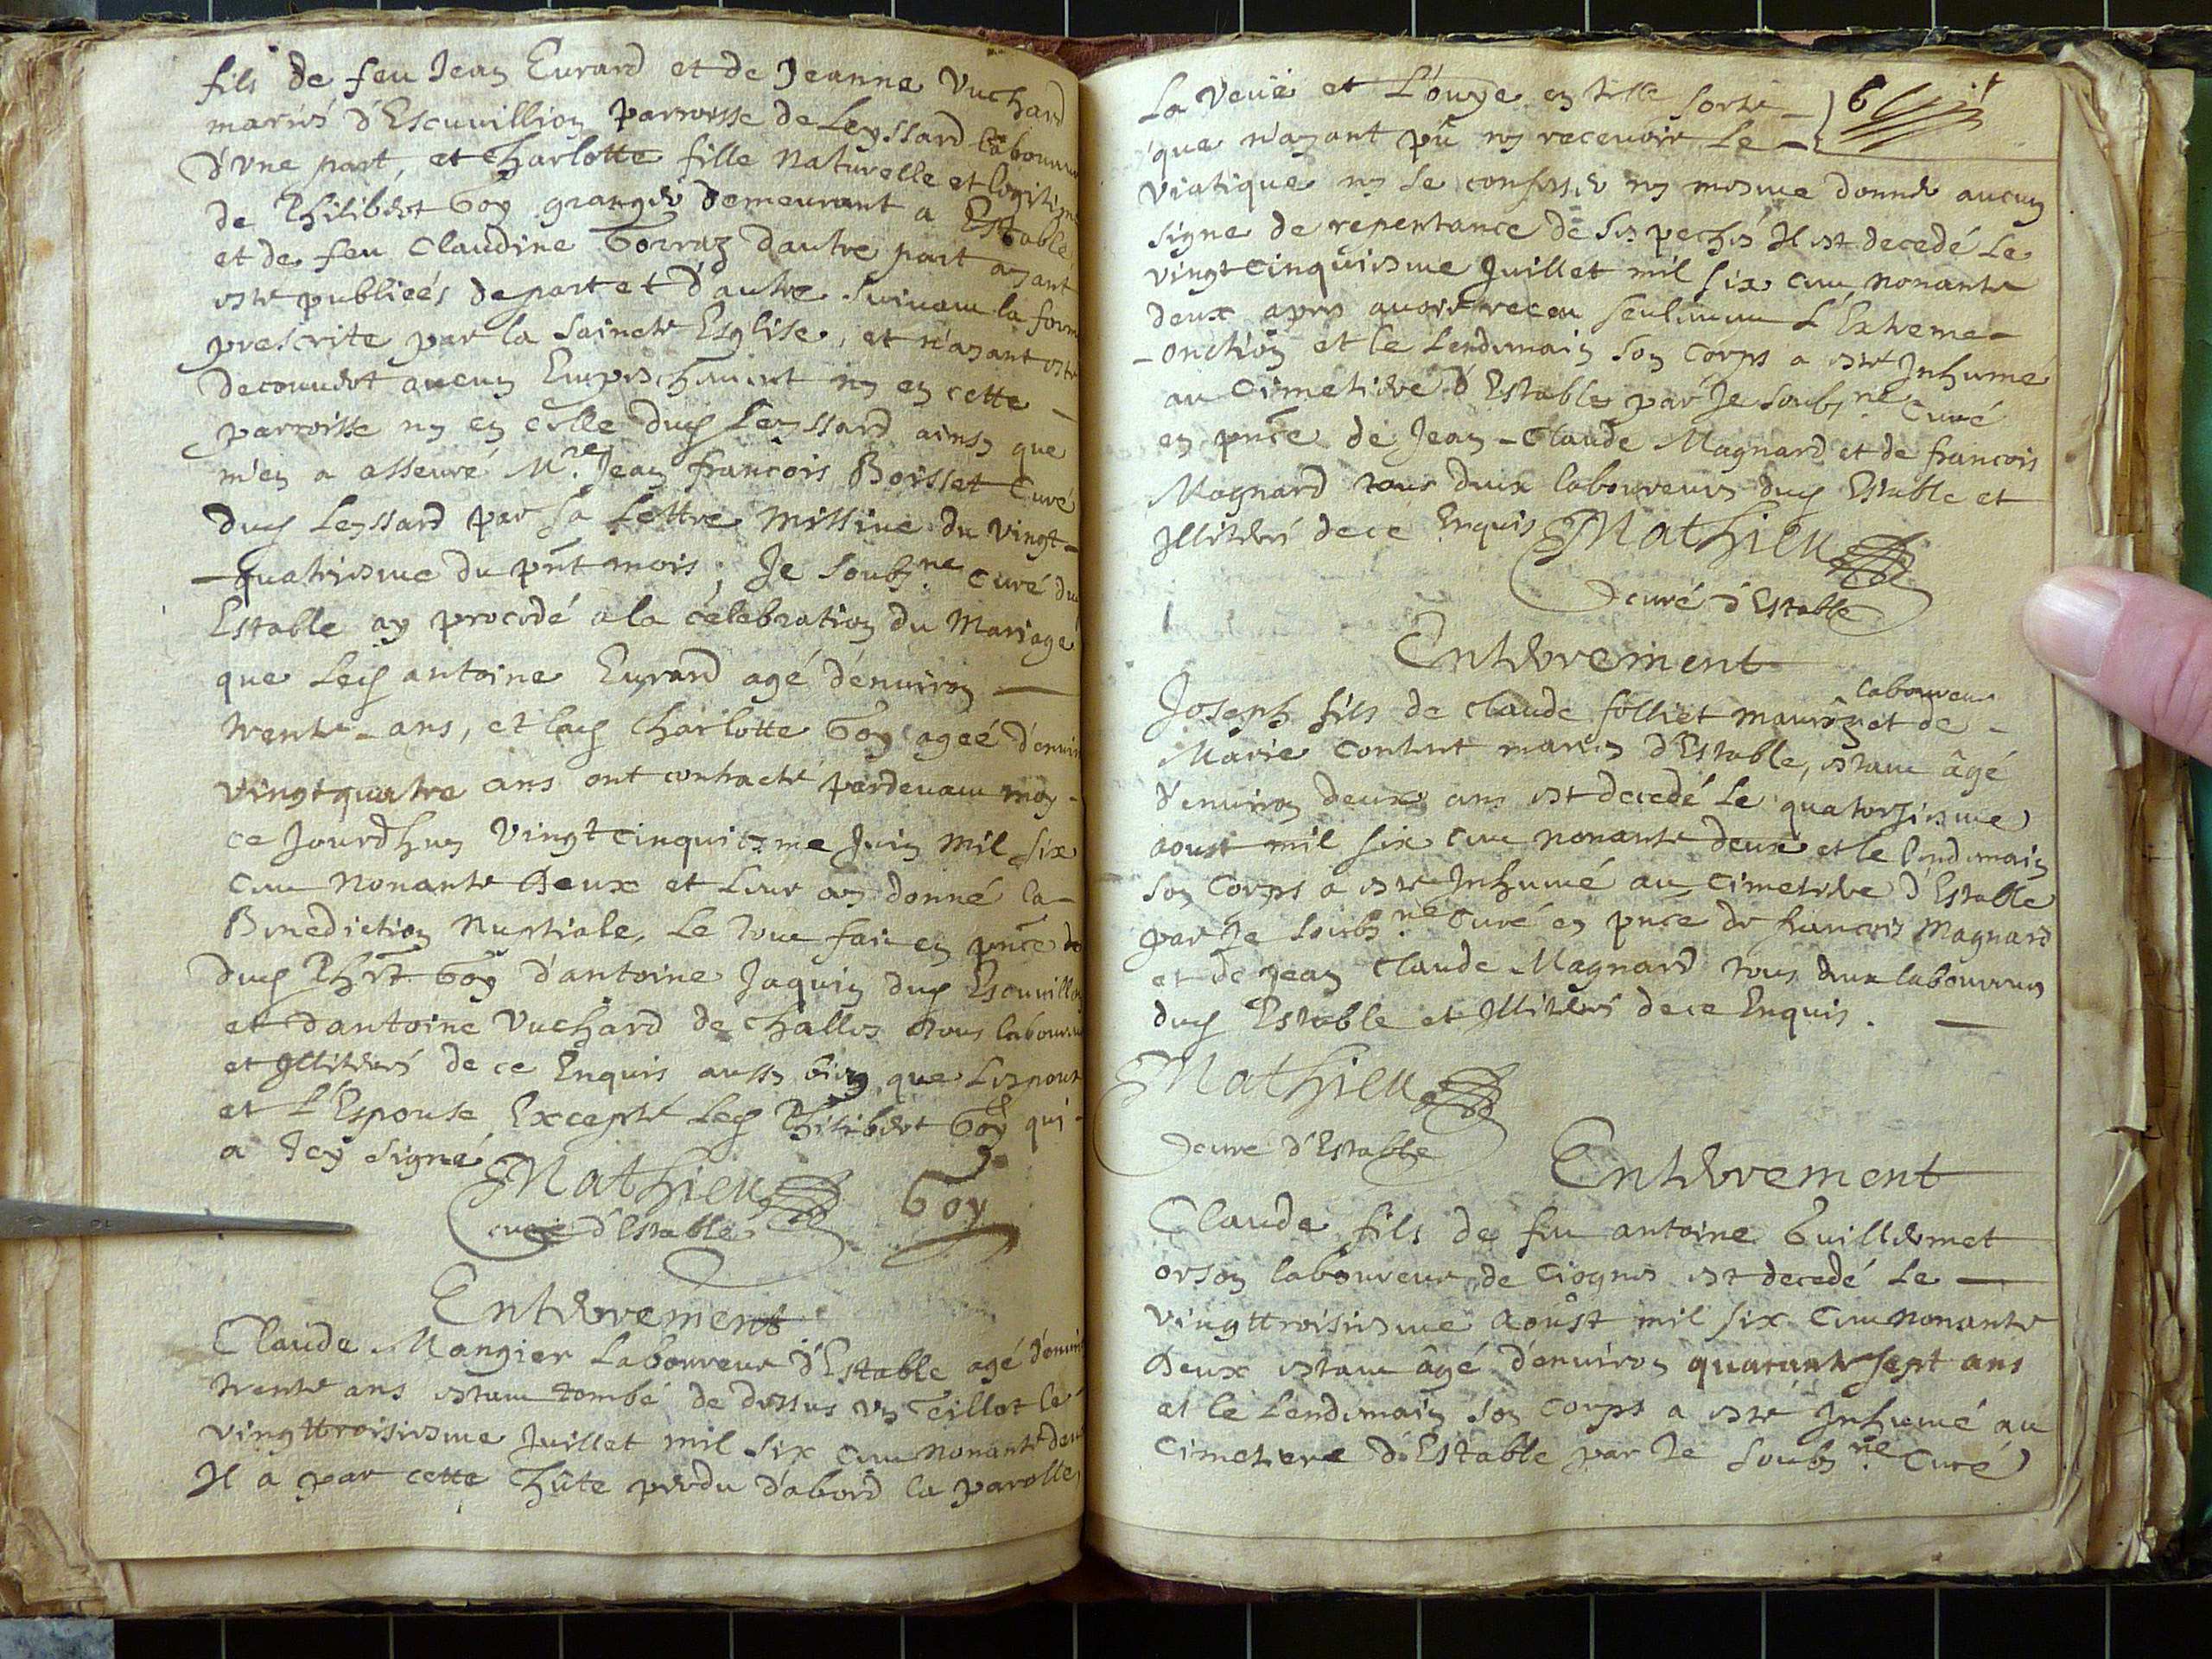 fils de feu Jean Eurard et de Jeanne Vuchard
mariés d'Escuuillion parroisse de Leyssard laboureur
d'vne part, et Charlotte fille naturelle et legitime
de Philibert Goy granger demeurant a Estable
et de feu Claudine Gorraz dautre part ayant
esté publiées de part et d'autre suiuant la forme
prescrite par la saincte Esglise, et n'ayant esté
decouuert aucun Empeschement ny en cette
parroisse ny en celle dud Leyssard ainsy que
m'en a asseuré Mre Jean françois Boisset Curé
dud Leyssard par sa Lettre missiue du vingt-
-quatriesme du pnt mois; Je soubzne curé dud
Estable ay procedé a la celebration du Mariage
que Led antoine Eurard agé d'enuiron
trente ans, et lad Charlotte Goy ageé d'enuiron
vingtquatre ans ont contracté pardeuant moy
ce Jourdhuy vingtcinquiesme Juin mil six
cent nonante deux et Leur ay donné la
Benediction Nuptiale, Le tout fait en pnce de
dud Phrt Goy d'antoine Jaquin dud Escuuillon
et d'antoine Vuchard de Challes tous laboureurs
et Illiterés de ce Enquis aussy bien que Lespoux
et L'Espouse Excepté Led Philibert Goy qui
a Icy signé
Mathieu Goy
curé d'Estable
Enterrement
Claude Mangier Laboureur d'Estable agé d'enuiron
trente ans estant tombé de dessus vn Teillot le
vingttroisiesme Juillet mil six cent nonante deux
Il a par cette chûte perdu d'abord la parolle
La veüe et L'ouye en telle sorte 6
que n'ayant pû ny receuoir Le
viatique ny se confesser ny mesme donner aucun
signe de repentance de ses pechés Il est decedé Le
vingtcinquiesme Juillet mil six cent nonante
deux apres auoir receu seulement L'Extreme-
-onction et le Lendemain son corps a esté Inhumé
au Cimetiere d'Estable par Je soubzne Curé
en pnce de Jean-Claude Magnard et de francois
Magnard tous deux laboureurs dud Estable et
Illiterés de ce Enquis Mathieu
curé d'Estable
Enterrement
laboureur
Joseph fils de Claude folliet et de
Marie Contet mariés d'Estable, estant âgé
d'enuiron deux ans est decedé Le quatorziesme
aoust mil six cent nonante deux et le lendemain
son Corps a esté Inhumé au Cimetiere d'Estable
par Je soubzné Curé en pnce de francois Magnard
et de Jean Claude Magnard tous deux laboureurs
dud Estable et Illiterés de ce Enquis.
Mathieu
curé d'Estable
Enterrement
Claude fils de feu antoine Guillermet
orson laboureur de Ciognes est decedé Le
vingttroisiesme Aoust mil six cent nonante
deux estant âgé d'enuiron quarante sept ans
et le Lendemain son corps a esté Inhumé au
Cimetiere d'Estable par Je soubzne Curé